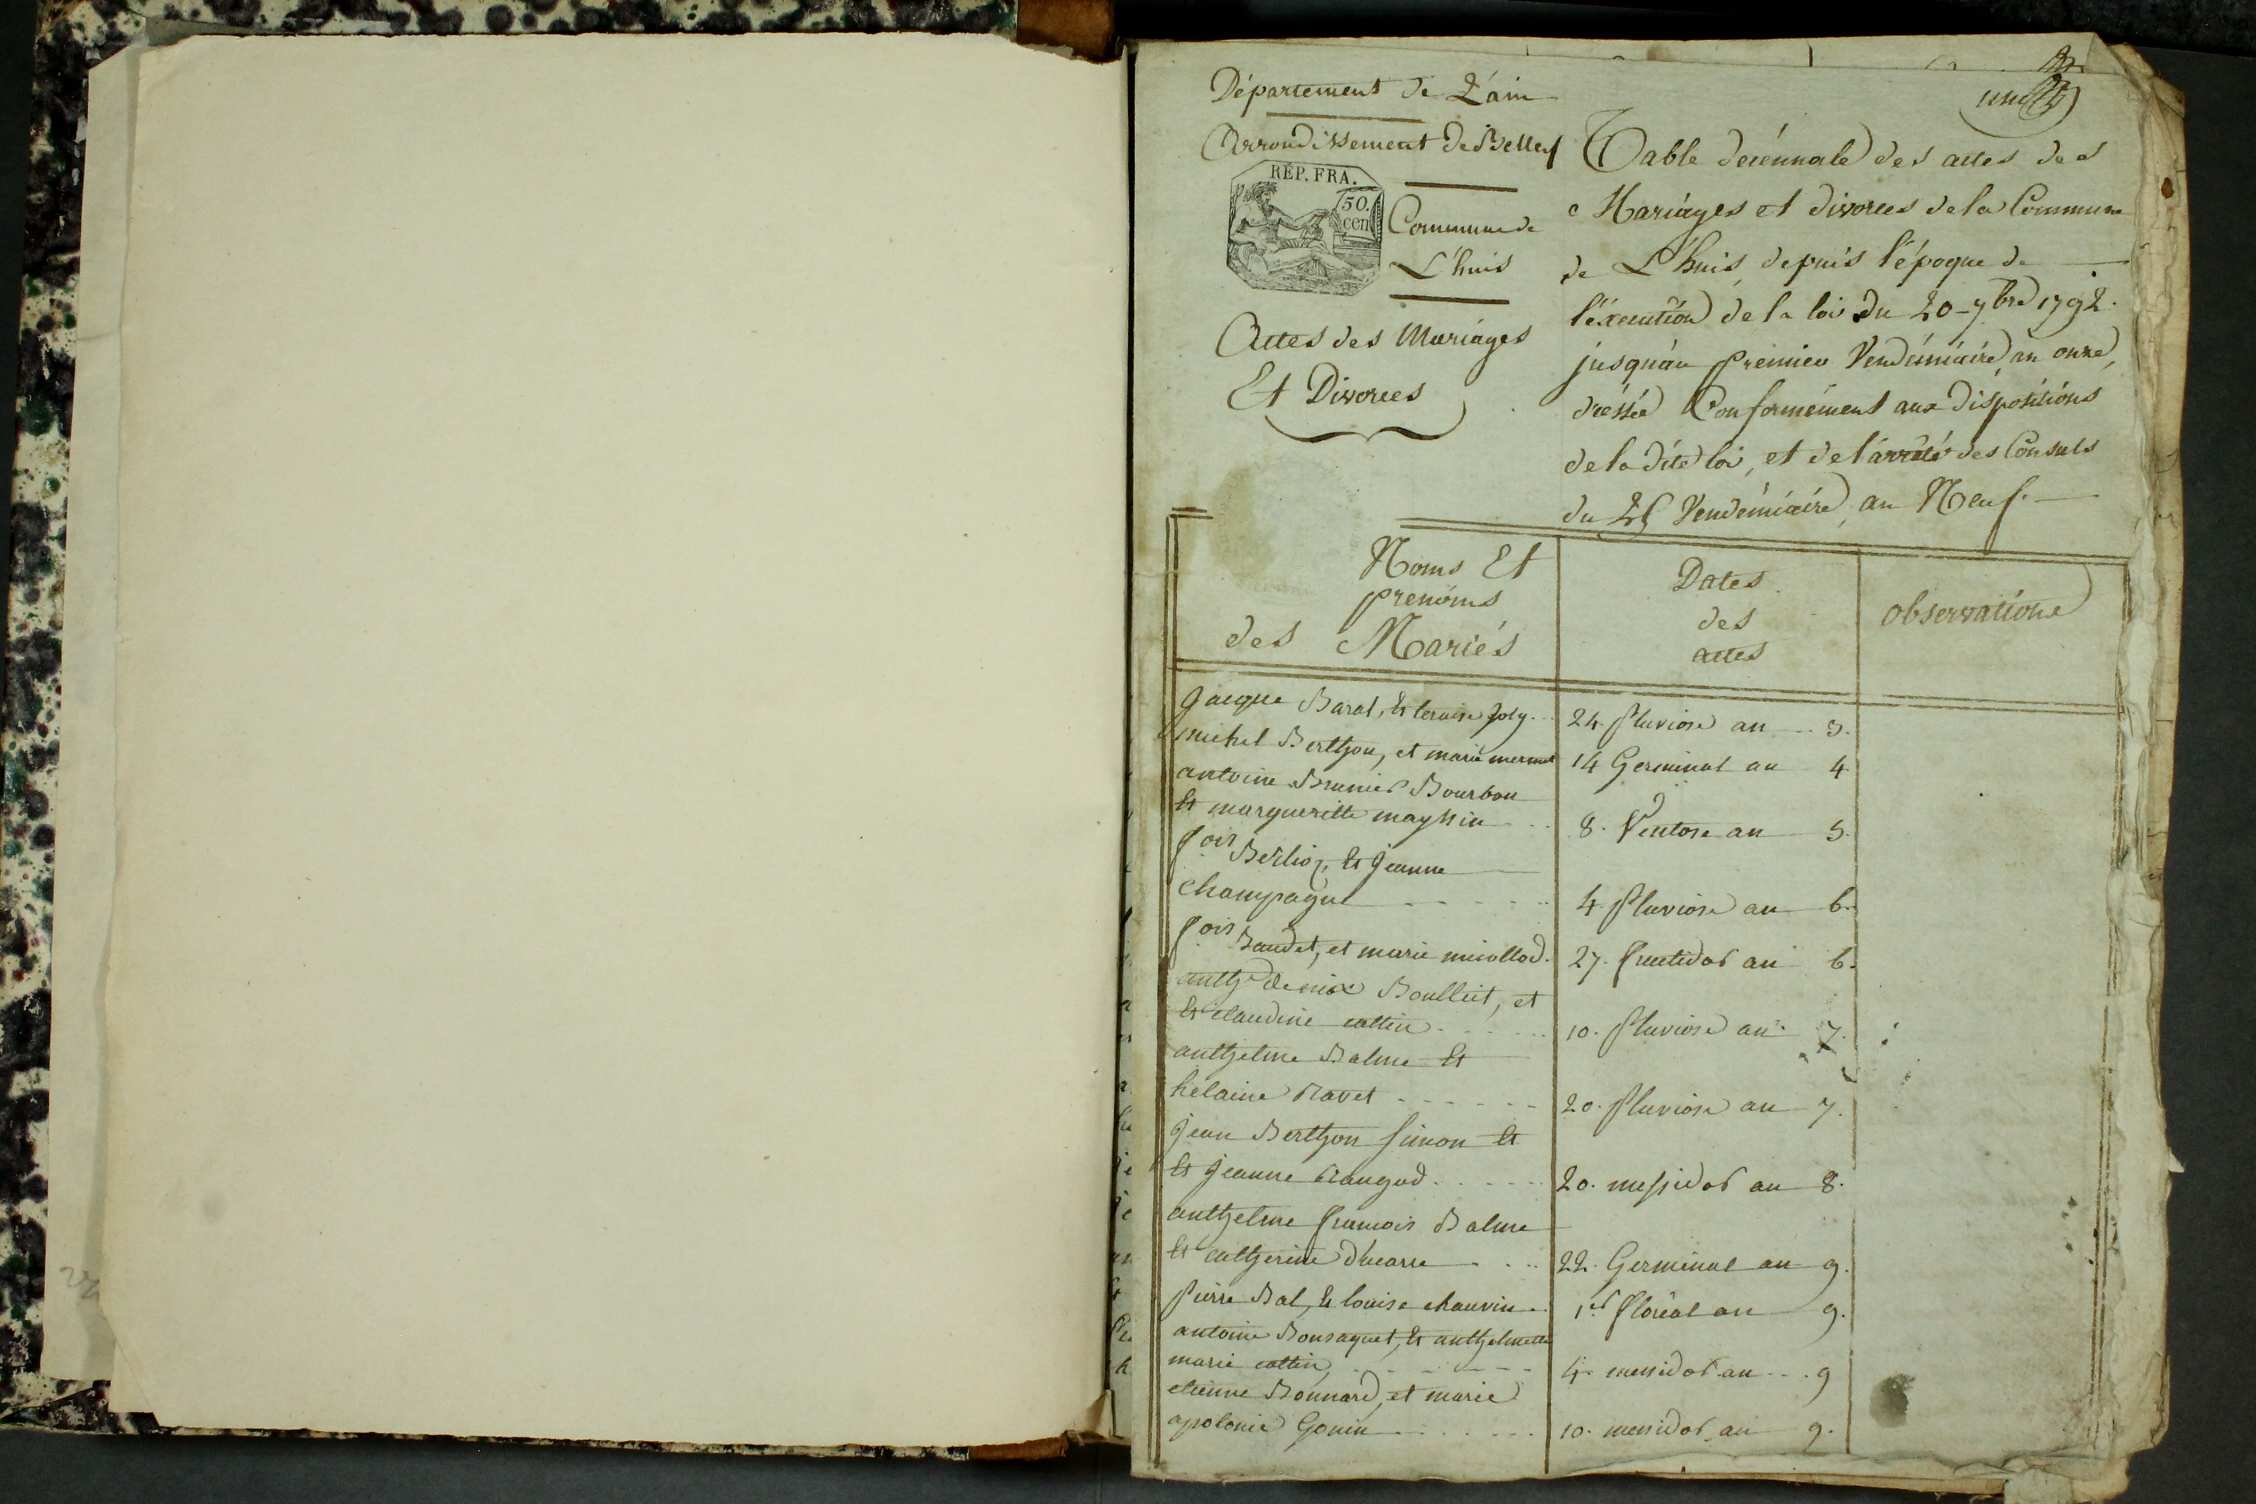 Département de L'ain
Arrondissement de Belley
RÉP. FRA.
50.
cen
Commune de
L'huis
Actes des Mariages
Et Divorces
Table décénnale des actes des
Mariages et divorces de la Commune
de L'huis, depuis l'époque de
l'éxecution de la loi du 20 7bre 1792.
jusqu'au premier Vendémiaire an onze,
dréssée Conformément aux dispositions
de la dite loi, et de l'arrêté des Consuls
du 25 Vendémiaire, an Neuf.
Noms Et
prenoms
des Mariés
Dates
des
actes
observations
Jacque Baral, Et Joly 24. pluviose an 3.
michel Berthon, et marie mermet 14 Germinal an 4.
antoine Brunier Bourbon
Et margueritte mayssin 8. Ventose an 5.
fois Berlioz, Et Jeanne
Champagne 4 pluviose an 6.
fois Baudet, et marie micollod. 27. fructidor an 6.
anthe Boulliet, et
Et claudine cottin 10. pluviose an 7.
anthelme Balme Et
helaine Ravet 20. pluviose an 7.
Jean Berthon Simon Et
Et Jeanne Rangod 20. messidor an 8.
anthelme francois Balme
Et catherine Ducarre 22. Germinal an 9.
pierre Bal, Et louise chauvin 1er floréal an 9.
antoine Bonsaquet, Et anthelmette
marie cottin, 4. messidor an 9
etienne Bonnard, et marie
apolonie Gonin 10. messidor an 9.